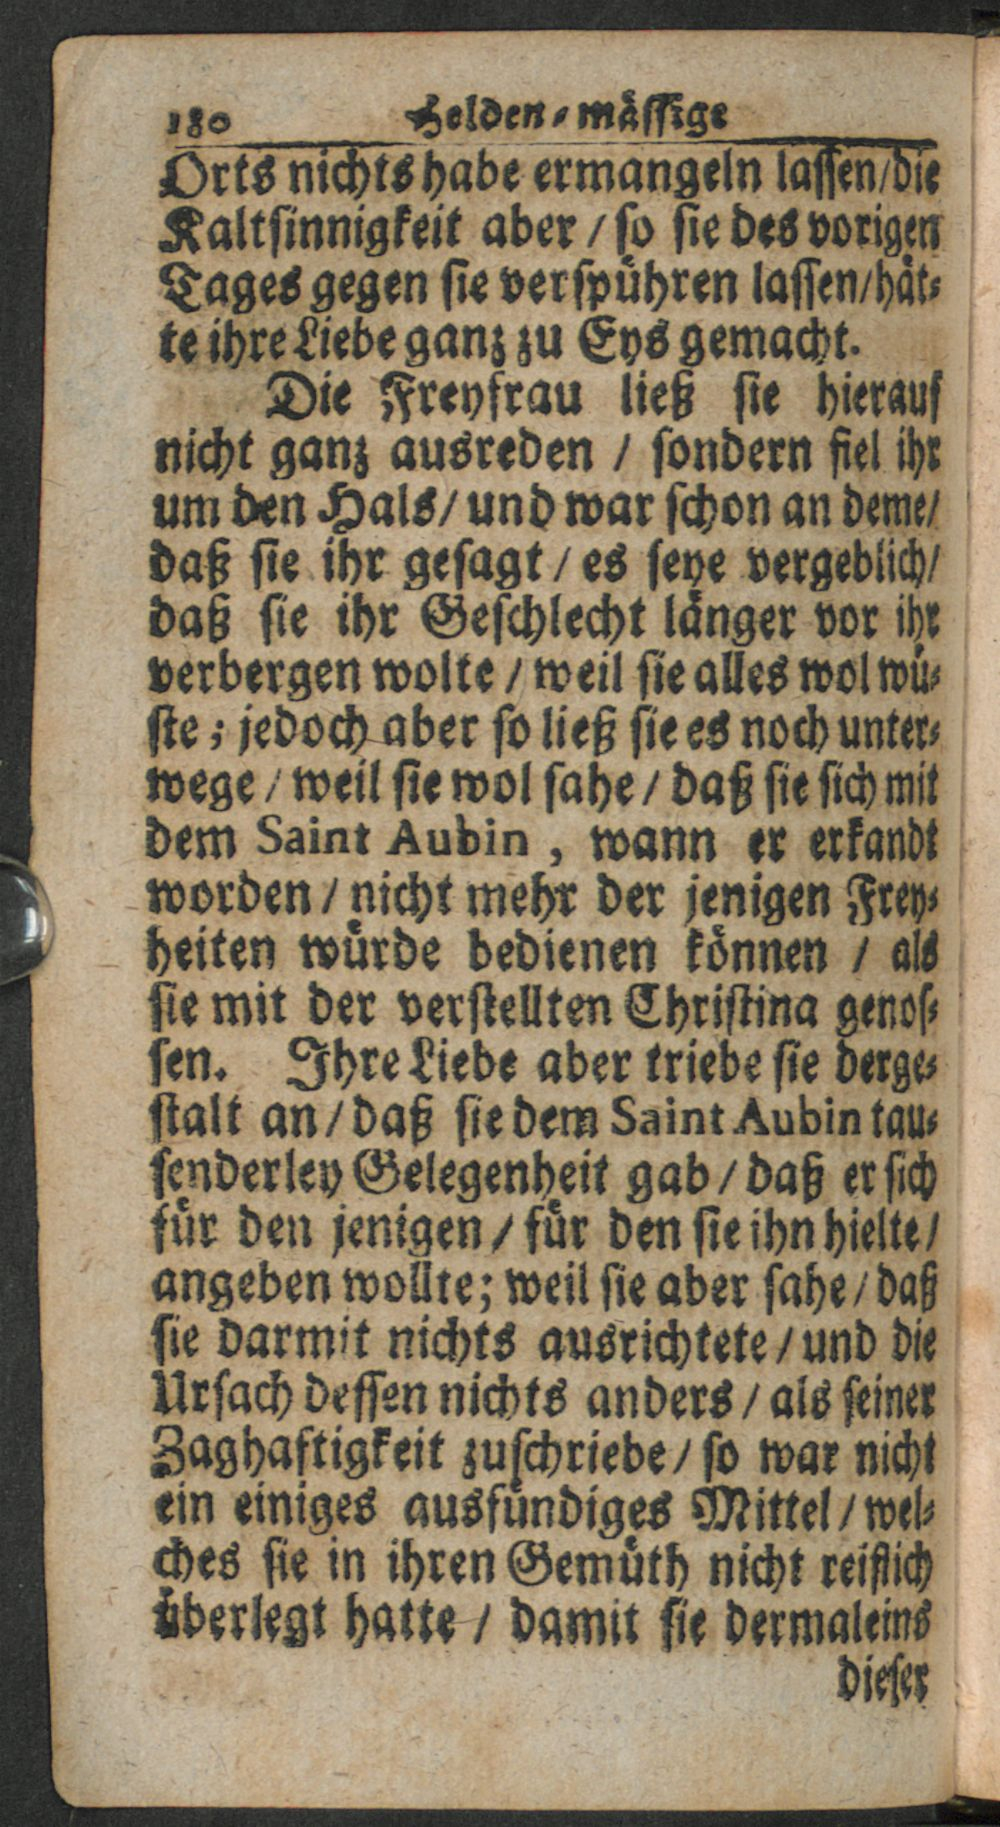 180 Helden⸗mäſſige
Orts nichts habe ermangeln laſſen/die
Kaltſinnigkeit aber / ſo ſie des vorigen
Tages gegen ſie verſpühren laſſen/hät⸗
te ihre Liebe ganz zu Eys gemacht.
Die Freyfrau ließ ſie hierauf
nicht ganz ausreden / ſondern fiel ihr
um den Hals/ und war ſchon an deme/
daß ſie ihr geſagt / es ſeye vergeblich/
daß ſie ihr Geſchlecht länger vor ihr
verbergen wolte / weil ſie alles wol wü⸗
ſte ; jedoch aber ſo ließ ſie es noch unter⸗
wege / weil ſie wol ſahe / daß ſie ſich mit
dem Saint Aubin , wann er erkandt
worden / nicht mehr der jenigen Frey⸗
heiten würde bedienen können / als
ſie mit der verſtellten Chriſtina genoſ⸗
ſen. Ihre Liebe aber triebe ſie derge⸗
ſtalt an / daß ſie dem Saint Aubin tau⸗
ſenderley Gelegenheit gab / daß er ſich
für den jenigen / für den ſie ihn hielte /
angeben wollte; weil ſie aber ſahe / daß
ſie darmit nichts ausrichtete / und die
Urſach deſſen nichts anders / als ſeiner
Zaghaftigkeit zuſchriebe / ſo war nicht
ein einiges ausfündiges Mittel / wel⸗
ches ſie in ihren Gemüth nicht reiflich
überlegt hatte / damit ſie dermaleins
dieſer